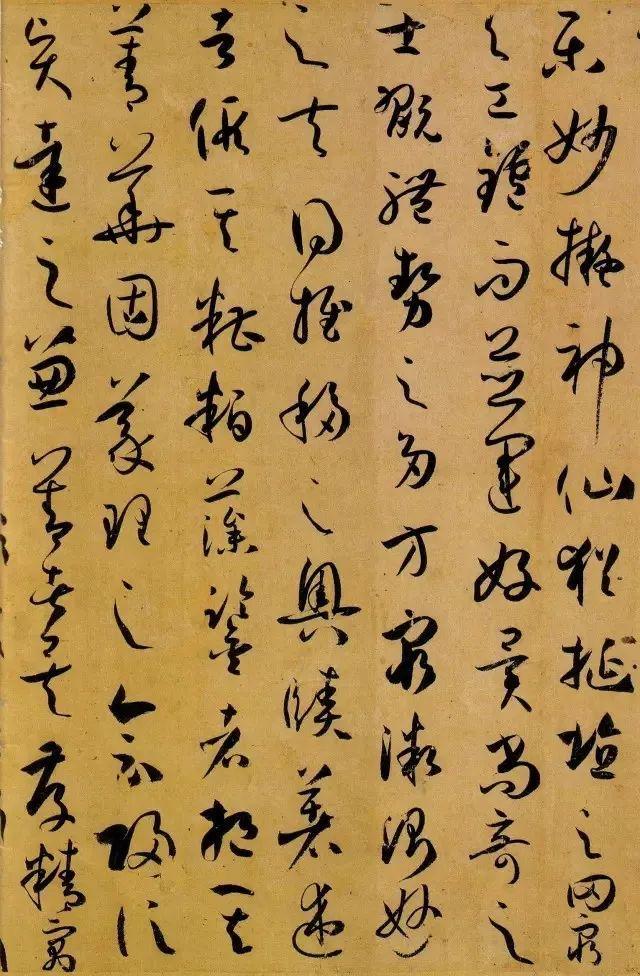 樂妙擬神仙猶埏埴之罔窮
与工鑪而並運好異尚奇之
士翫體勢之多方窮微測妙
之夫得推移之奧賾著述
者假其糟粕藻鑒者挹其
菁華固義理之會歸信
賢達之兼善者矣存精寓